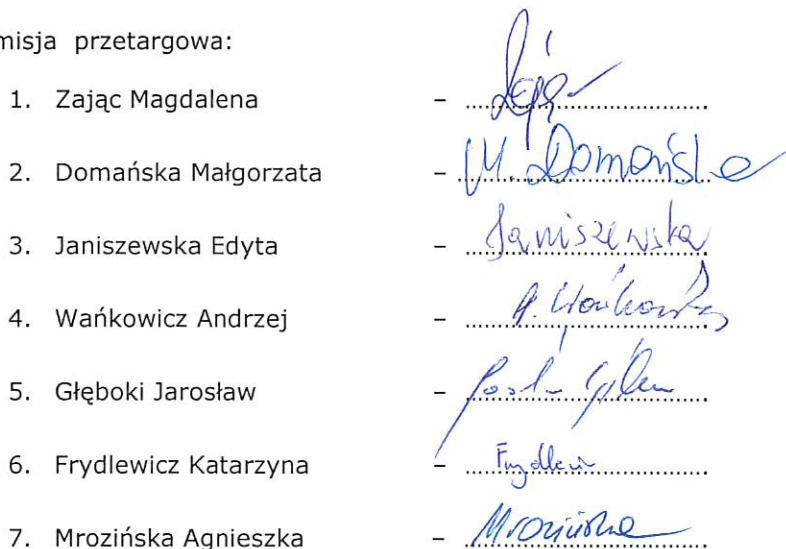 misja przetargowa:
1. Zając Magdalena –
2. Domańska Małgorzata – M. Domańska
3. Janiszewska Edyta – Janiszewska
4. Wańkowicz Andrzej –
5. Głęboki Jarosław –
6. Frydlewicz Katarzyna –
7. Mrozińska Agnieszka – Mrozińska